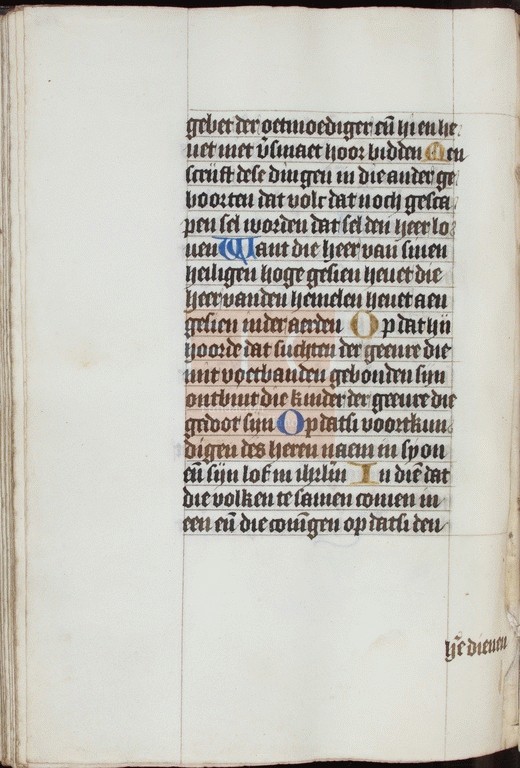 gebet der oetmoediger eñ hi en he
uet niet v̄smaet hoor bidden Men
scrijft dese dingen in die ander ge
boorten dat volc dat noch gesca
pen sel worden dat sel den heer lo
uen Want die heer van sinen
heiligen hoge gesien heuet die
heer vanden hemelen heuet aen
gesien in der aerden Op dat hij
hoorde dat suchten der geenre die
mit voetbanden gebonden sijn
ontbint die kinder der geenre die
gedoot sijn Op datsi voortkun
digen des heren naem in syon
eñ sijn lof in ihrlm̄ In diē dat
die volken te samen comen in
een eñ die coni̅gen op datsi den
hē dienen